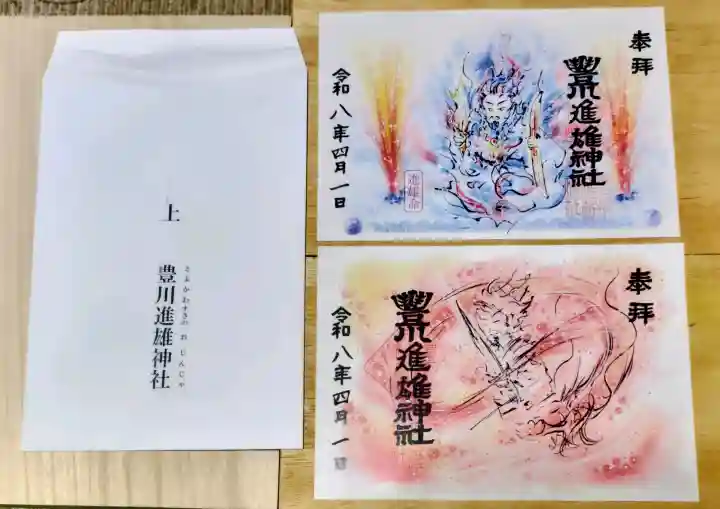 上
豊川進雄神社
とよかわすさのおじんじゃ
奉拝
豐川進雄神社
令和八年四月一日
進雄命
奉拝
豐川進雄神社
令和八年四月一